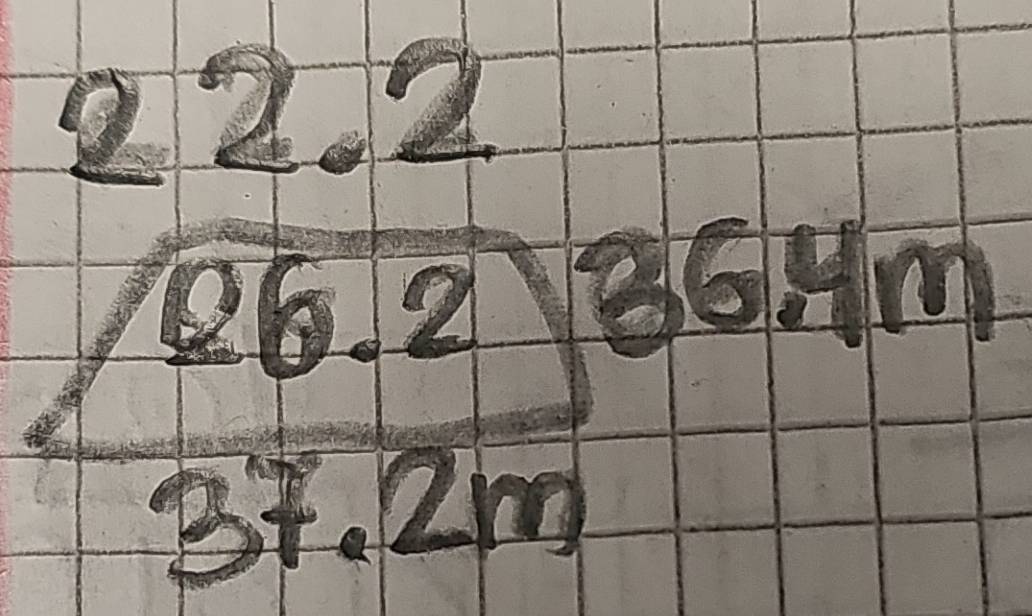 22.2
26.2 36.4m
37.2m